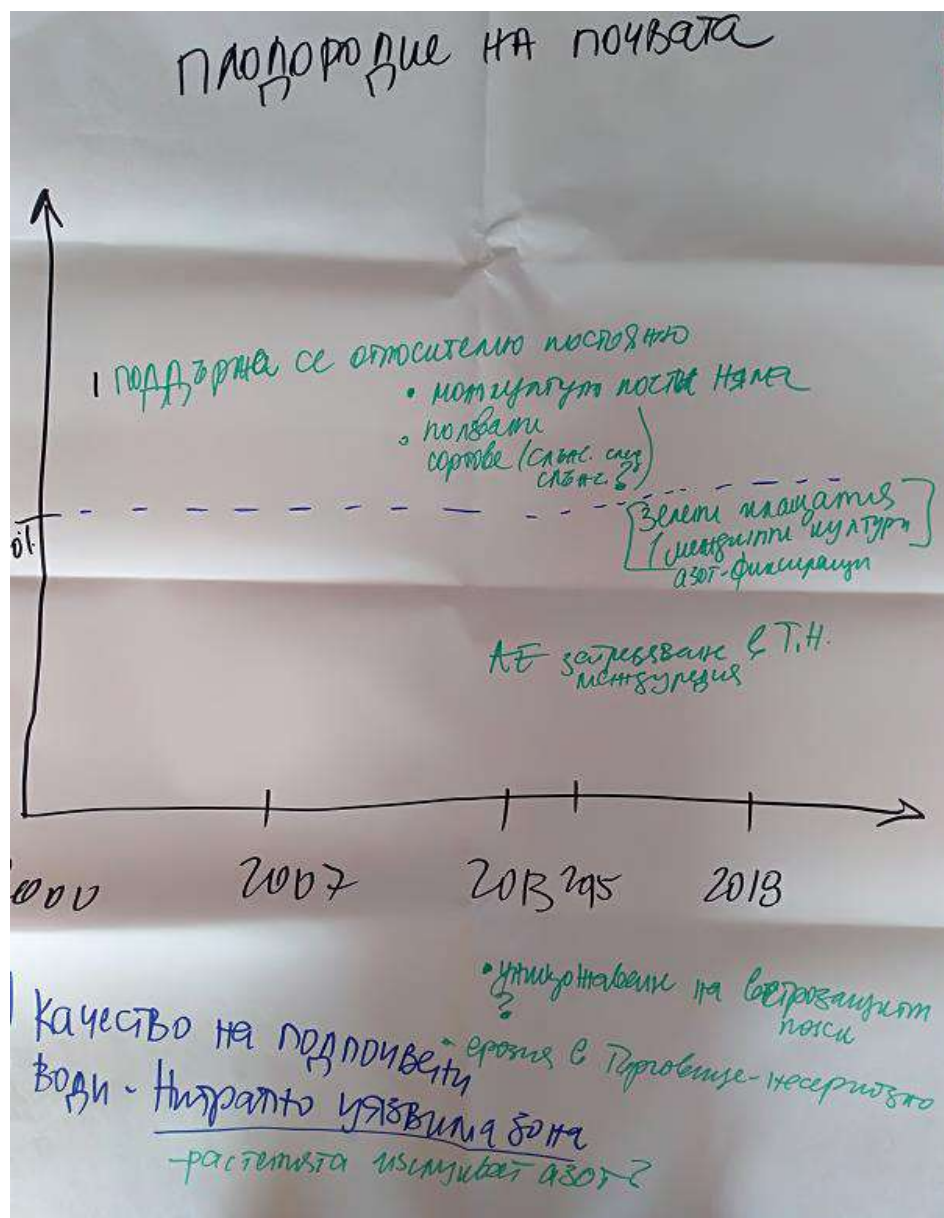 ПЛОДОРОДИЕ НА ПОЧВАТА
ПОДДЪРЖА СЕ относително постоянно
• монокултури почти няма
• ползвани
сортове (слънч. след
слънч.?)
Зелени плащания
(междинни култури
азот-фиксиращи
затревяване в Т.Н.
междуредия
2007 2013 2015 2018
• унищожаване на ветрозащитни
? пояси
- ерозия в Търговище-несериозно
Качество на подпочвени
води - Нитратно уязвима зона
-растенията изсмукват азот?